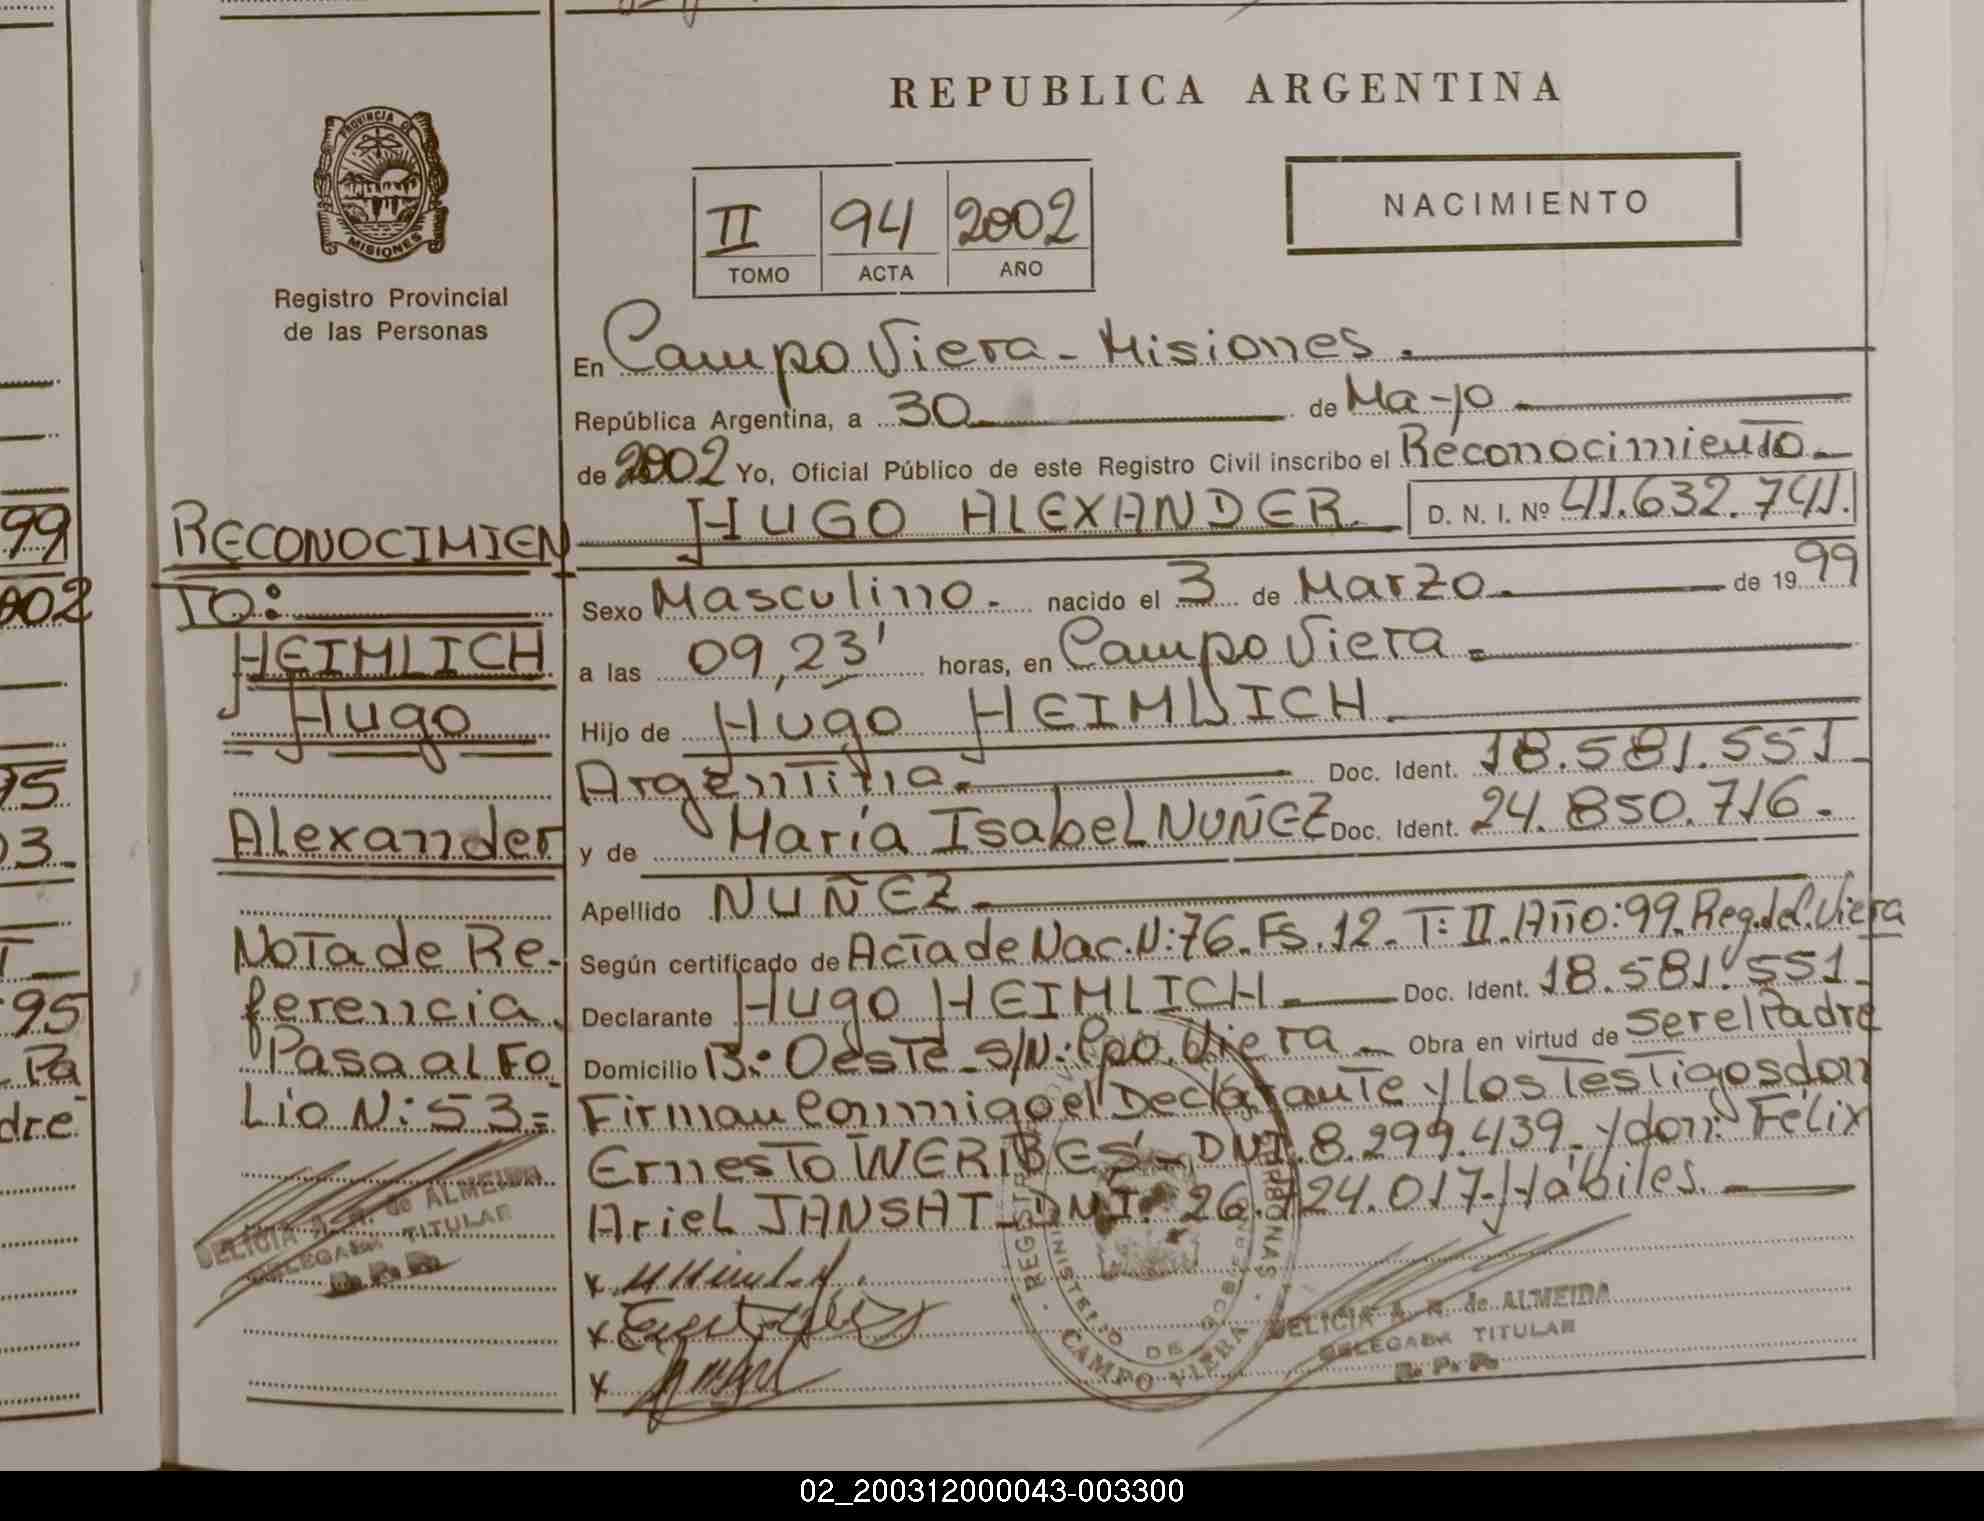 REPUBLICA ARGENTINA
PROVINCIA DE
MISIONES
Registro Provincial
de las Personas
II 94 2002
TOMO ACTA AÑO
NACIMIENTO
En Campo Viera - Misiones.
República Argentina, a 30 de Mayo
de 2002 Yo, Oficial Público de este Registro Civil inscribo el Reconocimiento
HUGO ALEXANDER D. N. I. Nº 41.632.741.
Sexo Masculino. nacido el 3 de Marzo de 1999
a las 09,23' horas, en Campo Viera
Hijo de Hugo HEIMLICH
Argentina. Doc. Ident. 18.581.551
y de María Isabel NUÑEZ Doc. Ident. 24.850.716.
Apellido NUÑEZ
Según certificado de Acta de Nac. N: 76. Fs. 12. T: II. Año: 99. Reg. del C. Viera
Declarante Hugo HEIMLICH Doc. Ident. 18.581.551
Domicilio B: Oeste S/N: Cpo. Viera Obra en virtud de ser el Padre
Firman Conmigo el Declarante y los Testigos don
Ernesto WERIBES - DNI. 8.299.439 y don: Félix
Ariel JANSAT - DNI. 26.724.017 - Hábiles.
x
x
x
REGISTRO PERSONAS
MINISTERIO DE GOBIERNO
CAMPO VIERA
DELICIA A. R. de ALMEIDA
DELEGADA TITULAR
R. P. P.
RECONOCIMIEN
TO:
HEIMLICH
Hugo
Alexander
Nota de Re-
ferencia
Pasa al Fo
Lio N: 53=
DELICIA A. R. de ALMEIDA
DELEGADA TITULAR
R. P. P.
99
002
95
03
95
Pa
dre
02_200312000043-003300